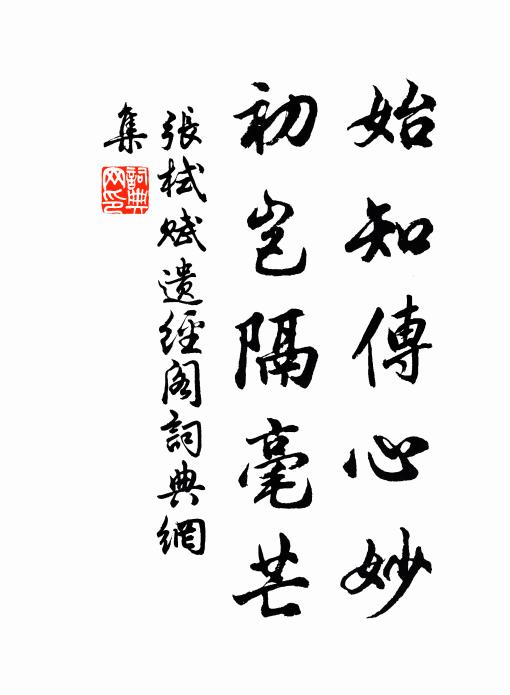 始知傳心妙
初豈隔毫芒
張栻賦遺經阁詞典網
集
詞典网印